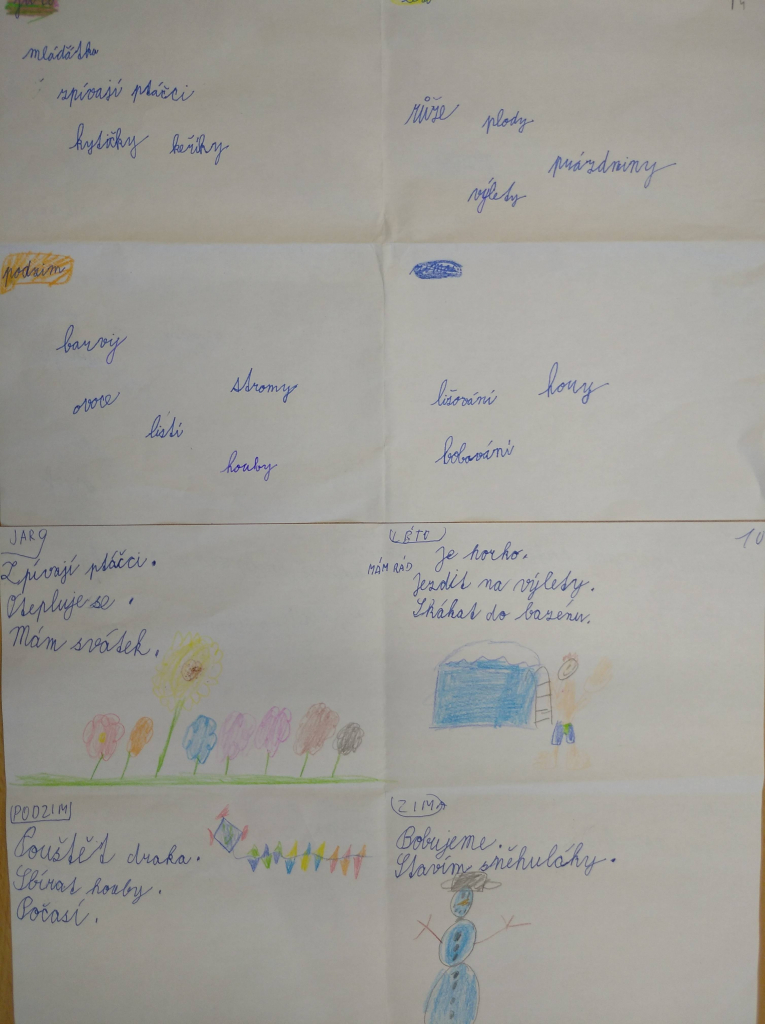 mláďátka
zpívají ptáčci
kytičky keříky
růže plody
prázdniny
výlety
podzim
barvy
ovoce
stromy
listí
houby
houy
lišování
bobování
JARO
Zpívají ptáčci.
Otepluje se.
Mám svátek.
LÉTO
10
MÁM RÁD
Je horko.
Jezdit na výlety.
Skákat do bazénu.
PODZIM
Pouštět draka.
Sbírat houby.
Počasí.
ZIMA
Bobujeme.
Stavím sněhuláky.